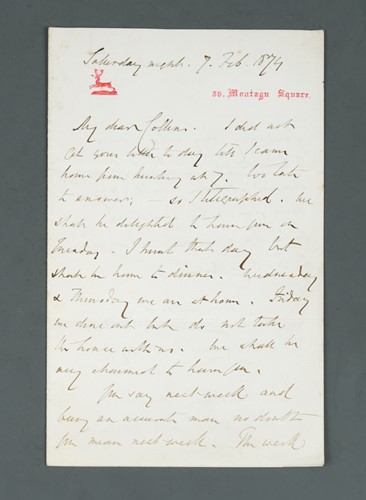 Saturday night. 7. Feb. 1874
39. Montagu Square.
My dear Collins. I did not
get your letter to day till I came
home from hunting at 7. Too late
to answer; — so I telegraphed. We
shall be delighted to have you on
Tuesday. I hunt that day but
shall be home to dinner. Wednesday
& Thursday we are at home. Friday
we dine out but do not take
the house with us. We shall be
very charmed to have you.
You say next week and
being an accurate man no doubt
you mean next week. The week